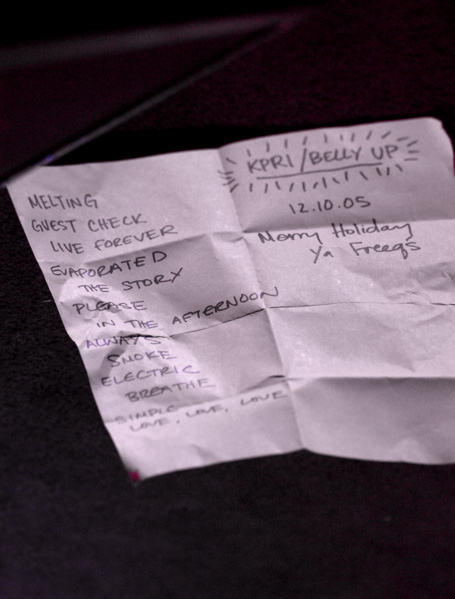 KPRI/BELLY UP
12.10.05
Merry Holiday
Ya Freeqs
MELTING
GUEST CHECK
LIVE FOREVER
EVAPORATED
THE STORY
PLEASE
IN THE AFTERNOON
ALWAYS
SMOKE
ELECTRIC
BREATHE
SIMPLE
LOVE, LOVE, LOVE